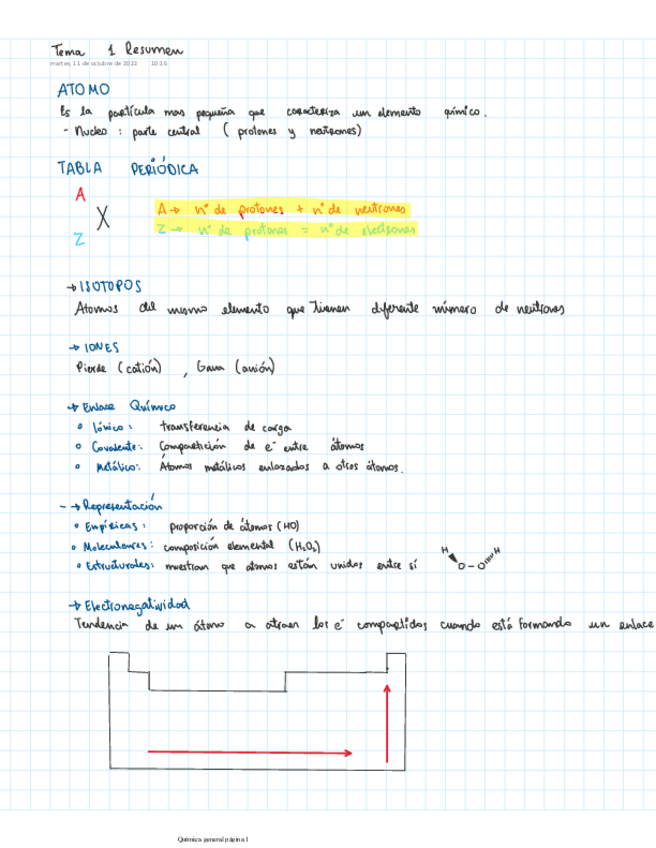 Tema 1 Resumen
martes, 11 de octubre de 2022 10:16
ATOMO
Es la partícula mas pequeña que caracteriza un elemento químico.
- Nucleo : parte central ( protones y neutrones)
TABLA PERIÓDICA
A
X
Z
A → nº de protones + nº de neutrones
Z → nº de protones = nº de electrones
→ ISOTOPOS
Atomos del mismo elemento que tienen diferente número de neutrones
→ IONES
Pierde (catión) , Gana (anión)
→ Enlace Químico
Iónico : transferencia de carga
Covalente: Compartición de e⁻ entre átomos
Metálico: Átomos metálicos enlazados a otros átomos.
- → Representación
Empíricas : proporción de átomos (HO)
Moleculares : composición elemental (H₂O₂)
Estructurales: muestran que atomos están unidos entre sí
H O - O H
→ Electronegatividad
Tendencia de un átomo a atraer los e⁻ compartidos cuando está formando un enlace
Química general página 1